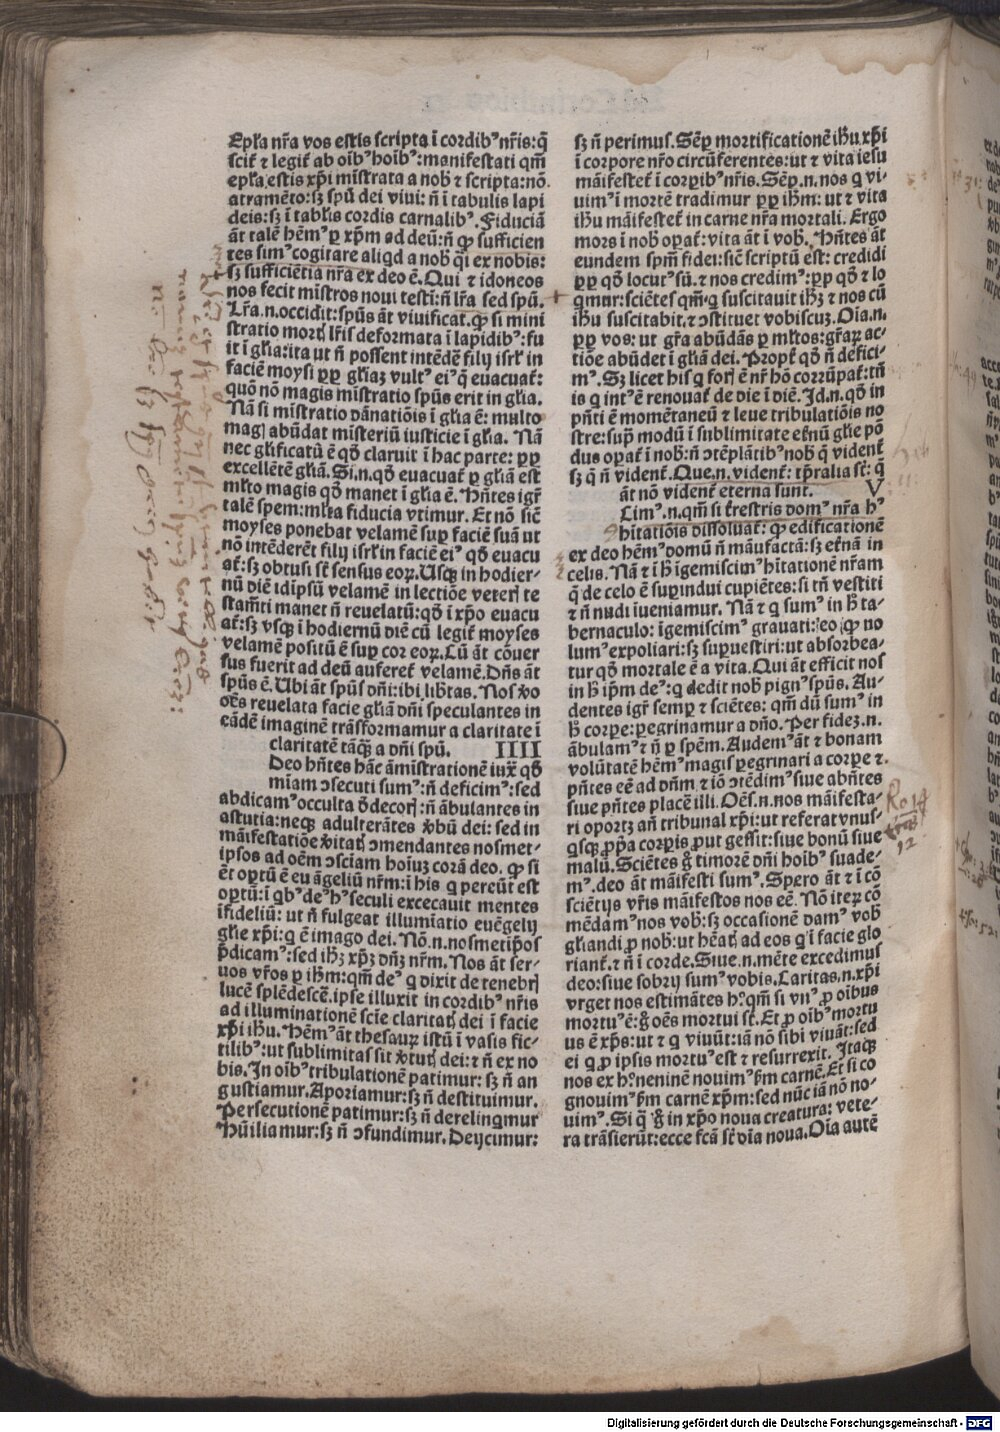 Epl'a nr̄a vos estis scripta ī cordib⁹ nr̄is: q̄
scit̄ ⁊ legit̄ ab oīb⁹ hoīb⁹: manifestati qm̄
epl'a estis xp̄i mīstrata a nob̄ ⁊ scripta: nō
atramēto: sꝫ spū dei vivi: n̄ ī tabulis lapi
deis: sꝫ ī tabl'is cordis carnalib⁹. Fiduciā
āt talē hēm⁹ ꝑ xp̄m ad deū: n̄ ꝙ sufficien
tes sim⁹ cogitare aliqd a nob̄ q̄i ex nobis:
sꝫ sufficiētia nr̄a ex deo ē. Qui ⁊ idoneos
nos fecit mīstros noui testī: n̄ lr̄a sed spū.
Lr̄a .n. occidit: spūs āt viuificat. ꝙ si mini
stratio mort{ lr̄is deformata ī lapidib⁹: fu
it ī gl'ia: ita ut n̄ possent intēdē filij isrl' in
faciē moysi ꝓp gl'iaꝫ vult⁹ ei⁹ q̄ euacuat̄:
quō nō magis mīstratio spūs erit in gl'ia.
Nā si mīstratio dānatiōis ī gl'ia ē: multo
mag{ abūdat misteriū iusticie ī gl'ia. Nā
nec glificatū ē qd̄ claruit ī hac parte: ꝓp
excellētē gl'iā. Si .n. qd̄ euacuat̄ ꝑ gl'iā est
ml'to magis qd̄ manet ī gl'ia ē. Hn̄tes igr̄
talē spem: ml'ta fiducia vtimur. Et nō sic̄
moyses ponebat velamē suꝑ faciē suā ut
nō intēderēt filij isrl' in faciē ei⁹ qd̄ euacu
at̄: sꝫ obtusi st̄ sensus eoꝝ. Usqꝫ in hodier-
nū diē idīpsū velamē in lectiōe veter{ te
stam̄ti manet n̄ reuelatū: qd̄ ī xp̄o euacu
at̄: sꝫ vsqꝫ ī hodiernū diē cū legit̄ moyses
velamē positū ē suꝑ cor eoꝝ. Cū āt cōuer
sus fuerit ad deū auferet̄ velamē. Dn̄s āt
spūs ē. Ubi āt spūs dn̄i: ibi lib̄tas. Nos v̄o
oēs reuelata facie gl'iā dn̄i speculantes in
eādē imaginē trāsformamur a claritate ī
claritatē tāq̄ꝫ a dn̄i spū. IIII
Deo hn̄tes hāc āmīstrationē iux̄ qd̄
mīam ↄsecuti sum⁹: n̄ deficim⁹: sed
abdicam⁹ occulta d̄decor{: n̄ ābulantes in
astutia: neqꝫ adulterātes v̄bū dei: sed in
māifestatiōe v̄itat{ ↄmendantes nosmet-
ipsos ad oēm ↄsciam hoīuꝫ corā deo. ꝙ si
ēt optū ē eu āgeliū nr̄m: ī his q pereūt est
optū: ī qb⁹ de⁹ h⁹ seculi excecauit mentes
īfideliū: ut n̄ fulgeat illumīatio euēgelij
gl'ie xp̄i: q ē imago dei. Nō .n. nosmetip̄os
p̄dicam⁹: sed ih̄ꝫ xp̄ꝫ dn̄ꝫ nr̄m. Nos āt ser-
uos vr̄os ꝑ ih̄m: qm̄ de⁹ q dixit de tenebr{
lucē splēdescē. ipse illuxit in cordib⁹ nr̄is
ad illuminationē scīe claritat{ dei ī facie
xp̄i ih̄u. Hēm⁹ āt thesauꝝ istū ī vasis fic-
tilib⁹: ut sublimitas sit v̄tut{ dei: ⁊ n̄ ex no
bis. In oīb⁹ tribulationē patimur: sꝫ n̄ an
gustiamur. Aporiamur: sꝫ n̄ destituimur.
Persecutionē patimur: sꝫ n̄ derelinqmur
Hūiliamur: sꝫ n̄ ↄfundimur. Deijcimur:
sꝫ n̄ perimus. Sēꝑ mortificationē ih̄u xp̄i
ī corpore nr̄o circūferentes: ut ⁊ vita iesu
māifestet̄ ī corꝑib⁹ nr̄is. Sēꝑ .n. nos q vi-
uim⁹ ī mortē tradimur ꝓp ih̄m: ut ⁊ vita
ih̄u māifestet̄ in carne nr̄a mortali. Ergo
mors ī nob̄ oꝑat̄: vita āt ī vob̄. Hn̄tes āt
eundem spm̄ fidei: sic̄ scriptū est: credidi
ꝓp qd̄ locut⁹ sū. ⁊ nos credim⁹: ꝓp qd̄ ⁊ lo
qmur: sciētes qm̄ q suscitauit ih̄ꝫ ⁊ nos cū
ih̄u suscitabit. ⁊ ↄstituet vobiscuꝫ. Oīa .n.
ꝓp vos: ut gr̄a abūdās ꝑ ml'tos: gr̄aꝝ ac-
tiōe abūdet ī gl'iā dei. Propt̄ qd̄ n̄ defici-
m⁹. Sꝫ licet his q for{ ē nr̄ hō corrūpat̄: tn̄
is q int⁹ ē renouat̄ de die ī diē. Id .n. qd̄ in
pn̄ti ē momētaneū ⁊ leue tribulatiōis no
stre: sup̄ modū ī sublimitate et̄nū gl'ie pō
dus oꝑat̄ ī nob̄: n̄ ↄtēplātib⁹ nob̄ q̄ vident̄
sꝫ q̄ n̄ vident̄. Que .n. vident̄: tp̄ralia st̄: q̄
āt nō vident̄ eterna sunt. V
Cim⁹ .n. qm̄ si t̄restris dom⁹ nr̄a h⁹
hitatiōis dissoluat̄: ꝙ edificationē
ex deo hēm⁹ domū n̄ māufactā: sꝫ et̄nā in
celis. Nā ⁊ ī h̄ īgemiscim⁹ hītationē nr̄am
q̄ de celo ē suꝑindui cupiētes: si tn̄ vestiti
⁊ n̄ nudi īueniamur. Nā ⁊ q sum⁹ in h̄ ta-
bernaculo: īgemiscim⁹ grauati: eo ꝙ no
lum⁹ expoliari: sꝫ suꝑuestiri: ut absorbea-
tur qd̄ mortale ē a vita. Qui āt efficit nos
in h̄ ip̄m de⁹: q dedit nob̄ pign⁹ spūs. Au-
dentes igr̄ semꝑ ⁊ sciētes: qm̄ dū sum⁹ in
h̄ corpe: ꝑegrinamur a dn̄o. Per fideꝫ .n.
ābulam⁹ ⁊ n̄ ꝑ spēm. Audem⁹ āt ⁊ bonam
volūtatē hēm⁹ magis ꝑegrinari a corpe ⁊
pn̄tes eē ad dn̄m ⁊ iō ↄtēdim⁹ siue abn̄tes
siue pn̄tes placē illi. Oēs .n. nos māifesta-
ri oportꝫ an̄ tribunal xp̄i: ut referat vnus-
qsqꝫ ꝓp̄a corꝑis ꝓut gessit: siue bonū siue
malū. Sciētes g̊ timorē dn̄i hoīb⁹ suade-
m⁹. deo āt māifesti sum⁹. Spero āt ⁊ ī cō
sciētijs vr̄is māifestos nos eē. Nō iteꝝ cō
mēdam⁹ nos vob̄: sꝫ occasionē dam⁹ vob̄
gl'iandi ꝓ nob̄: ut hēat{ ad eos q ī facie glo
riant̄. ⁊ n̄ ī corde. Siue .n. mēte excedimus
deo: siue sobrij sum⁹ vobis. Caritas .n. xp̄i
vrget nos estimātes h⁹. qm̄ si vn⁹ ꝓ oībus
mortu⁹ ē: g̊ oēs mortui st̄. Et ꝓ oib⁹ mortu
us ē xp̄s: ut ⁊ q viuūt: iā nō sibi viuāt: sed
ei q ꝓ ipsis mortu⁹ est ⁊ resurrexit. Itaqꝫ
nos ex h⁹ neninē nouim⁹ ẜm carnē. Et si co
gnouim⁹ ẜm carnē xp̄m: sed nūc iā nō no-
uim⁹. Si q̄ g̊ in xp̄o noua creatura: vete-
ra trāsierūt: ecce fc̄a st̄ oīa noua. Oīa autē
Ro 14
12
Digitalisierung gefördert durch die Deutsche Forschungsgemeinschaft - DFG